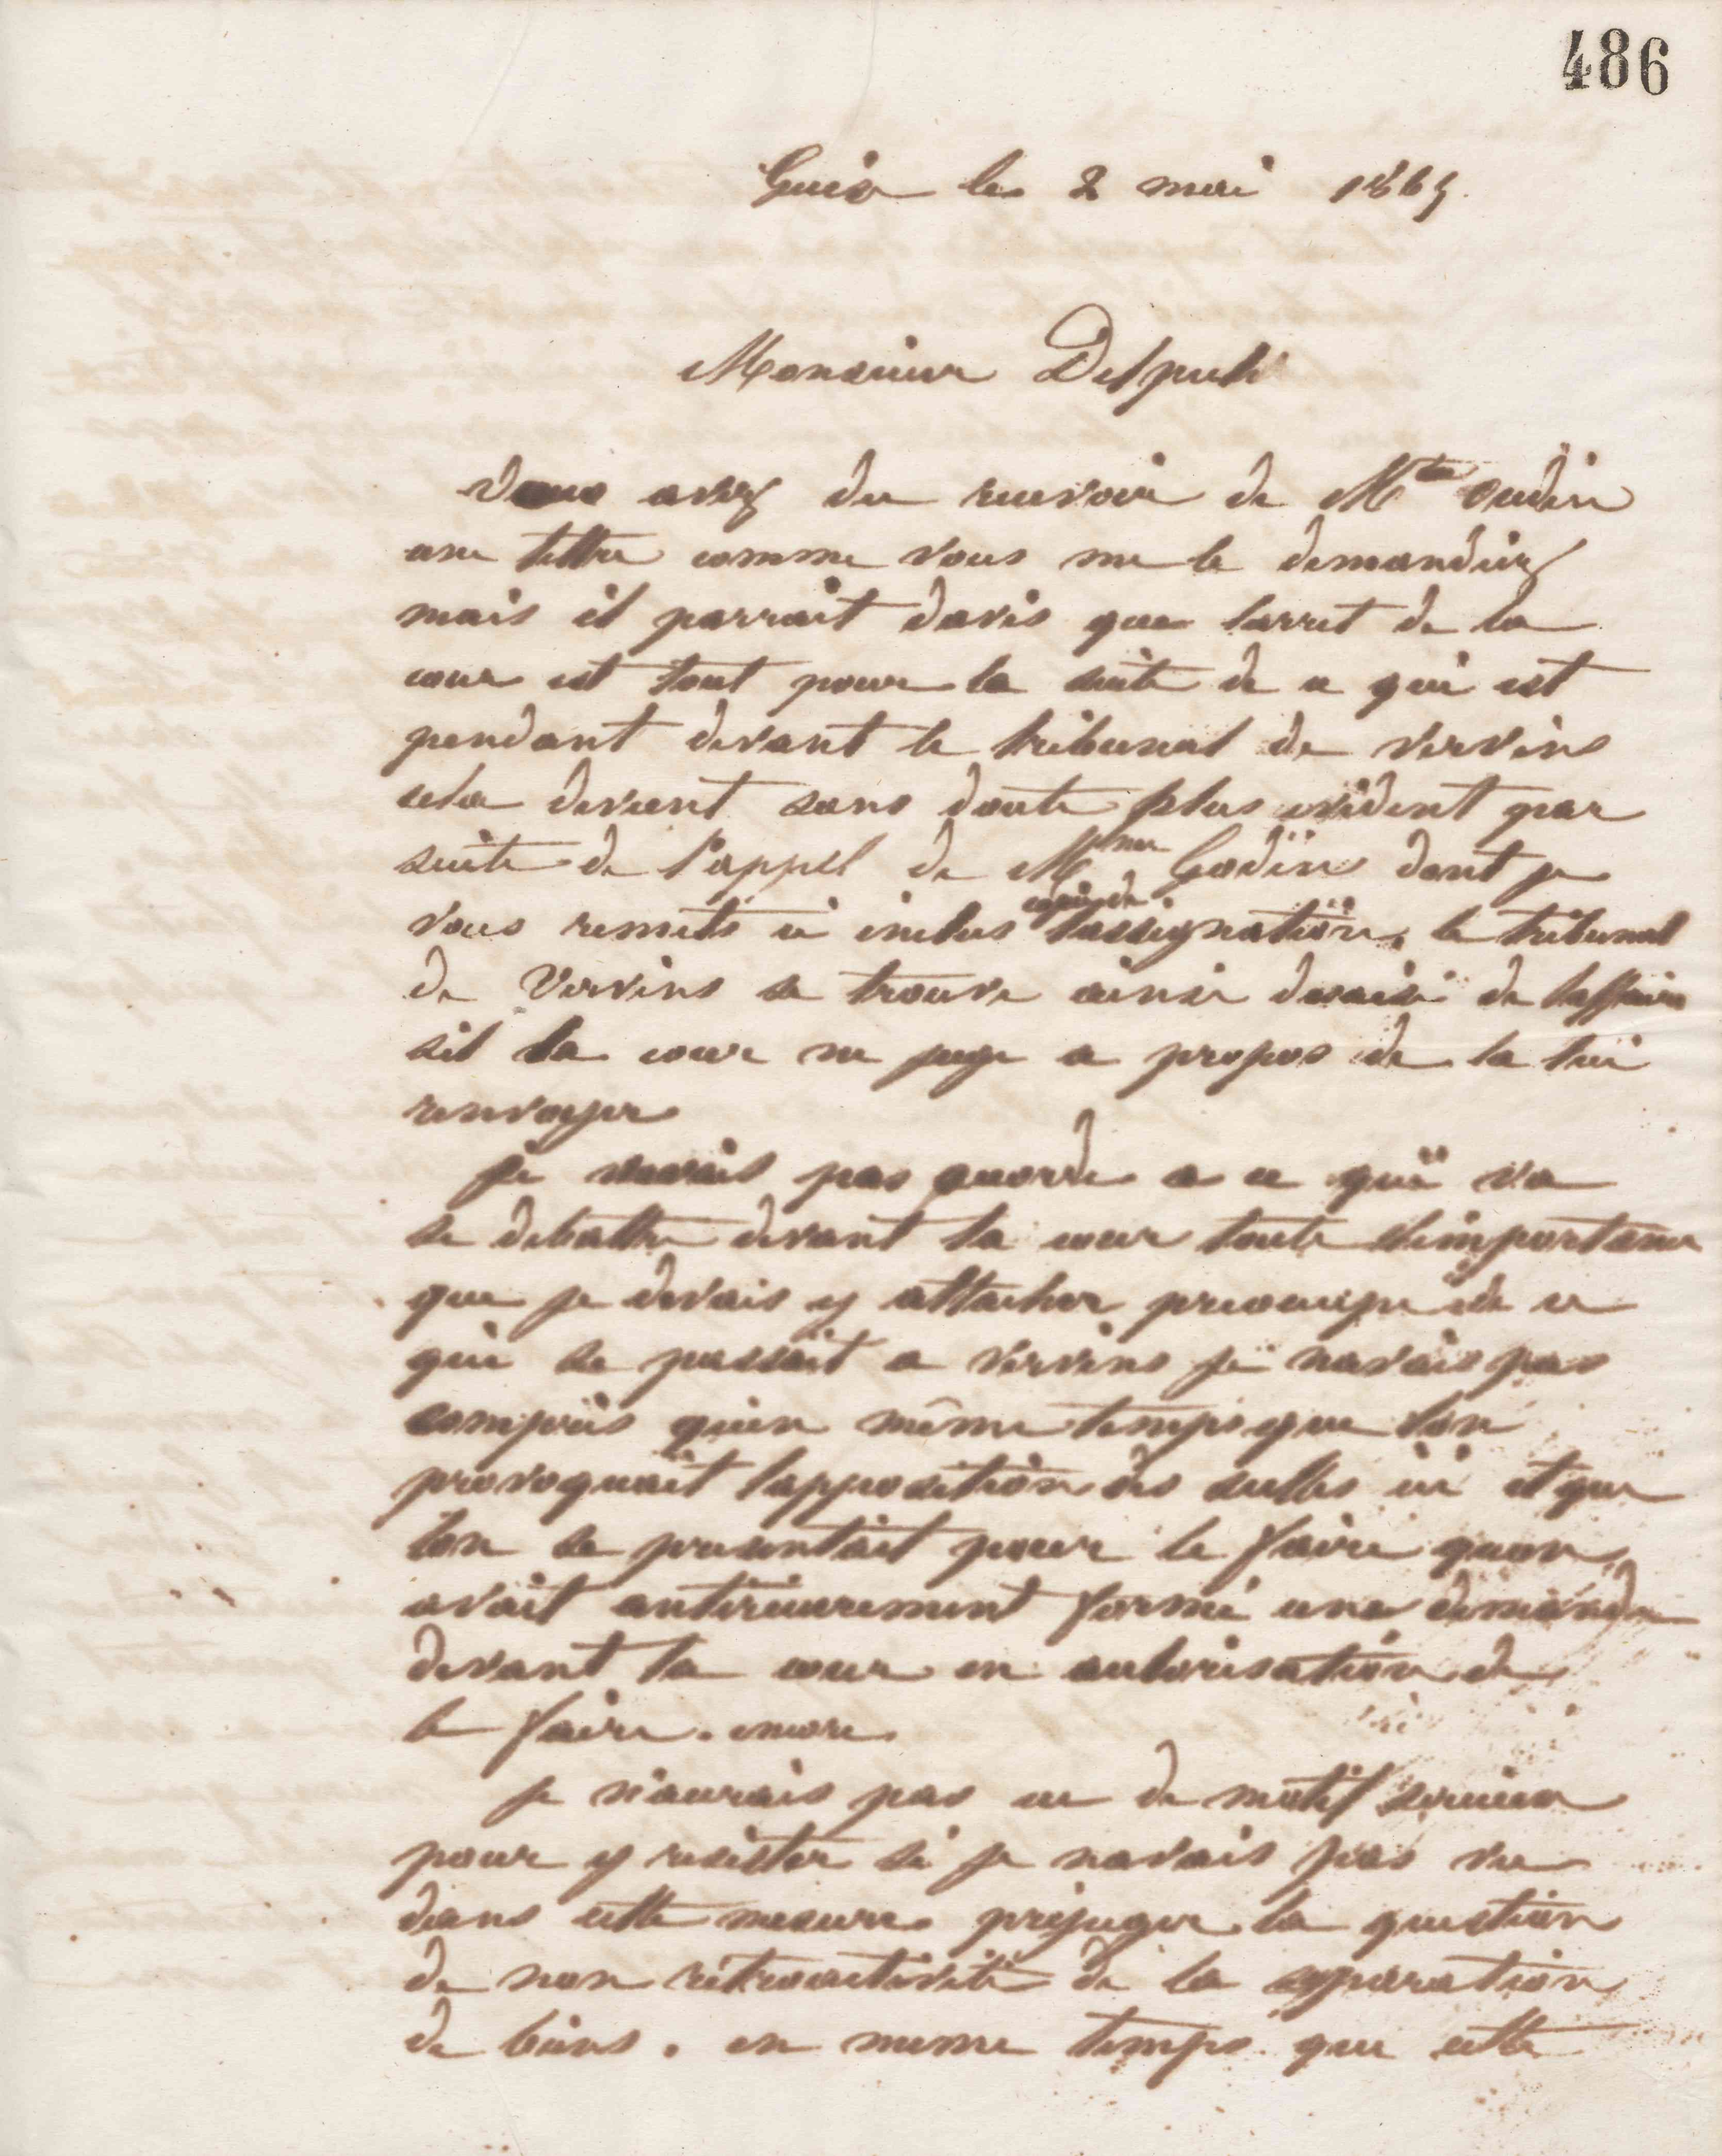 486
Guise le 2 mai 1865
Monsieur Delpech
Vous avez du recevoir de Mtre Oudin
une lettre comme vous me le demandiez
mais il parrait davis que larret de la
cour est tout pour la suite de ce qui est
pendant devant le tribunal de Vervins
cela devient sans doute plus evident par
suite de l'appel de Mme Godin dont je
vous remets ci inclus copie de lassignation. le tribunal
de Vervins se trouve ainsi desaisi de laffaire
sil la cour ne juge a propos de la lui
renvoyer
je navais pas accordé a ce qui va
se debattre devant la cour toute limportance
que je devais y attacher preoccupé de ce
qui se passait a Vervins je navais pas
compris quen même temps que lon
provoquait lapposition des scellés ici et que
lon se presentait pour le faire quon
avait anterieurement formé une demande
devant la cour en autorisation de
le faire. encore
je n'aurais pas eu de motif serieux
pour y resister si je navais pas vu
dans cette mesure préjuger la question
de non rétroactivité de la separation
de biens. en meme temps que cette